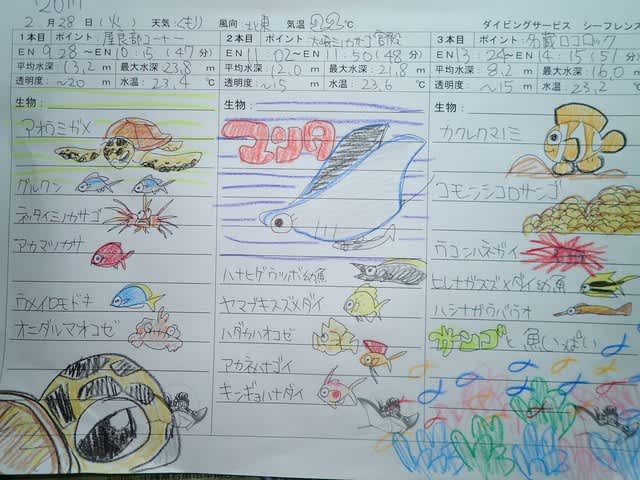 2 月 28 日 (火) 天気 くもり 風向 北東 気温 22 ℃
ダイビングサービス シーフレンズ
1本目 ポイント: 屋良部コーナー
EN 9:28 ~EN 10:15 (47分)
平均水深 13,2 m 最大水深 23,8 m
透明度: ~20 m 水温: 23,4 ℃
生物:
アオウミガメ
グルクン
ネッタイミノカサゴ
アカマツカサ
ウメイロモドキ
オニダルマオコゼ
2本目 ポイント:
EN 11:02 ~EN 11:50 (48分)
平均水深 12,0 m 最大水深 21,8 m
透明度: ~15 m 水温: 23,6 ℃
生物:
マンタ
ハナヒゲウツボ幼魚
ヤマブキスズメダイ
ハダカハオコゼ
アカネハナゴイ
キンギョハナダイ
3本目 ポイント: 名蔵口ロック
EN 13:24 ~EN 14:15 (51分)
平均水深 8,2 m 最大水深 16,0 m
透明度: ~15 m 水温: 23,2 ℃
生物:
カクレクマノミ
コモンシコロサンゴ
ウコンハネガイ
ヒレナガスズメダイ幼魚
ハシナガウバウオ
サンゴと魚いっぱい